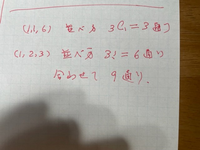 (1,1,6) 並べ方 3C1=3通り
(1,2,3) 並べ方 3!=6通り
合わせて 9通り.